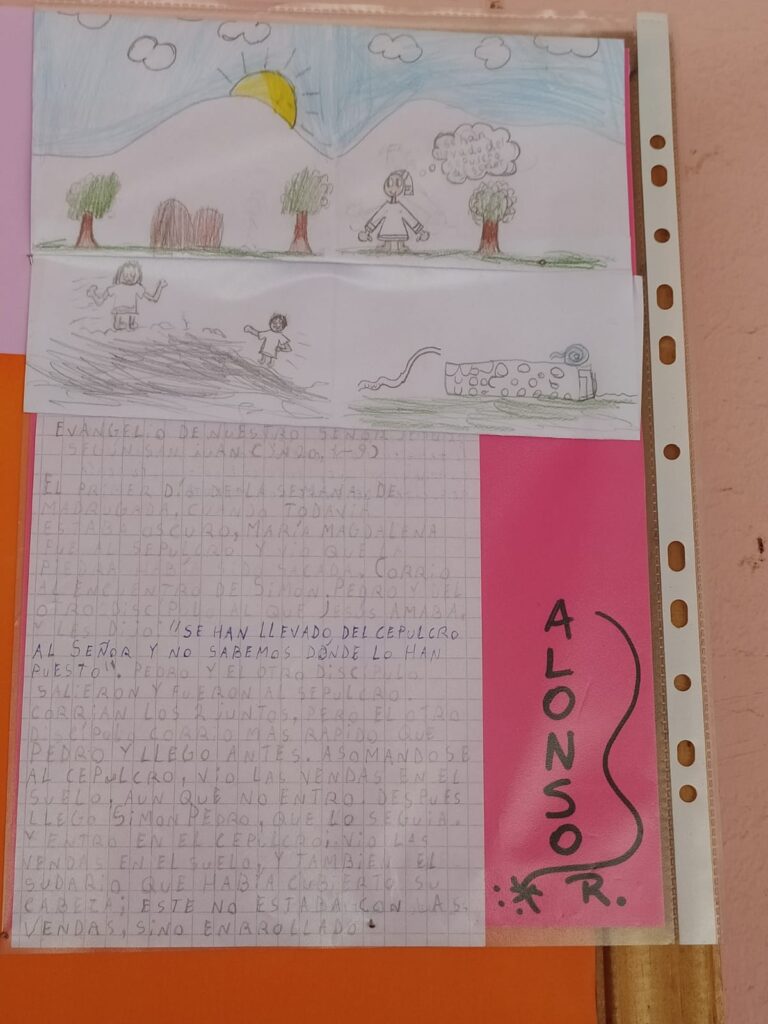 se han
llevado del
sepulcro
al señor
EVANGELIO DE NUESTRO SEÑOR
SEGÚN SAN JUAN (JN 20, 1-9)
EL PRIMER DÍA DE LA SEMANA, DE
MADRUGADA, CUANDO TODAVÍA
ESTABA OSCURO, MARÍA MAGDALENA
FUE AL SEPULCRO Y VIO QUE LA
PIEDRA HABÍA SIDO SACADA. CORRIÓ
AL ENCUENTRO DE SIMON PEDRO Y DEL
OTRO DISCIPULO AL QUE JESUS AMABA,
Y LES DIJO: "SE HAN LLEVADO DEL CEPULCRO
AL SEÑOR Y NO SABEMOS DONDE LO HAN
PUESTO". PEDRO Y EL OTRO DISCÍPULO
SALIERON Y FUERON AL SEPULCRO.
CORRIAN LOS 2 JUNTOS, PERO EL OTRO
DISCÍPULO CORRIO MAS RAPIDO QUE
PEDRO Y LLEGO ANTES. ASOMANDOSE
AL CEPULCRO, VIO LAS VENDAS EN EL
SUELO, AUN QUE NO ENTRO. DESPUES
LLEGO SIMON PEDRO, QUE LO SEGUIA,
Y ENTRO EN EL CEPULCRO, VIO LAS
VENDAS EN EL SUELO, Y TAMBIEN EL
SUDARIO QUE HABÍA CUBIERTO SU
CABEZA; ESTE NO ESTABA CON LAS
VENDAS, SINO ENRROLLADO
ALONSO
R.